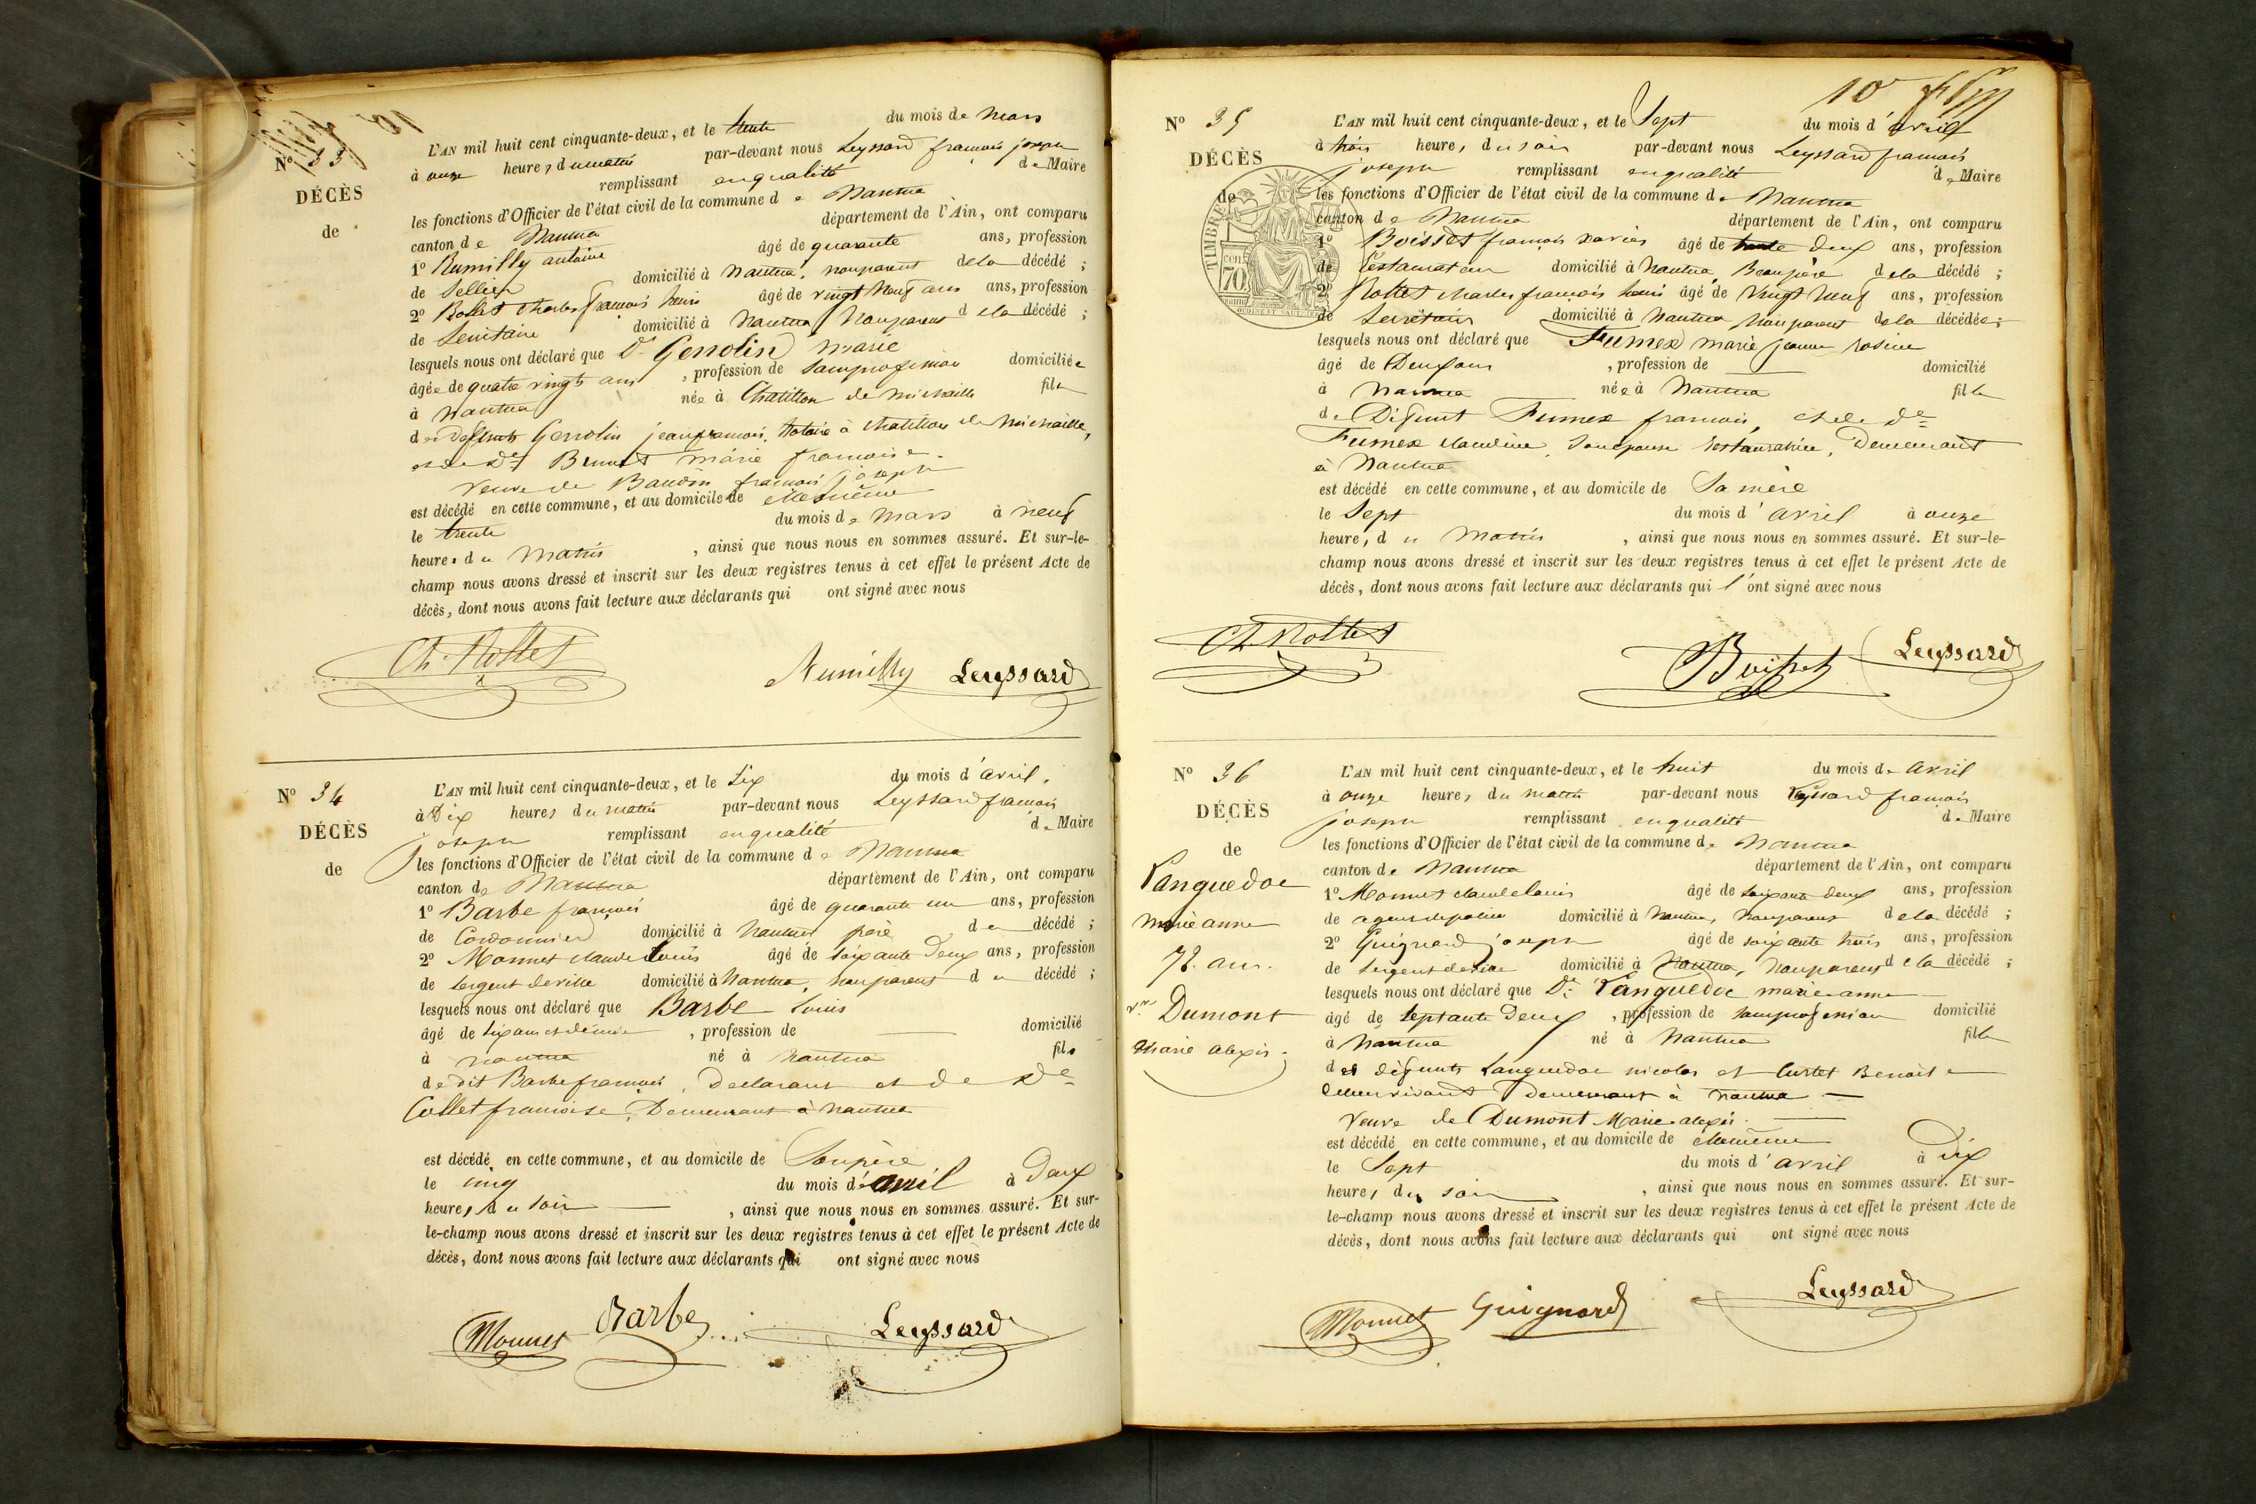 Nº 33
DÉCÈS
de
L'AN mil huit cent cinquante-deux, et le trente du mois de Mars
à onze heures du matin par-devant nous Leyssard françois joseph
remplissant en qualité de Maire
les fonctions d'Officier de l'état civil de la commune de Nantua
canton de Nantua département de l'Ain, ont comparu
1º Rumilly antoine âgé de quarante ans, profession
de Sellier domicilié à Nantua, nonparent dela décédé ;
2º Rollet Charles françois henri âgé de vingt Neuf ans ans, profession
de Secrétaire domicilié à Nantua Nonparent dela décédé ;
lesquels nous ont déclaré que De Genolin marie
âgée de quatre vingts ans , profession de Sansprofession domiciliée
à Nantua née à Chatillon de michaille fille
des défunts Genolin jean françois, Notaire à chatillon de michaille,
et de De Brunet marie francoise.
Veuve de Baudin françois joseph
est décédé en cette commune, et au domicile de ellemême
le trente du mois de Mars à neuf
heures du Matin , ainsi que nous nous en sommes assuré. Et sur-le-
champ nous avons dressé et inscrit sur les deux registres tenus à cet effet le présent Acte de
décès, dont nous avons fait lecture aux déclarants qui ont signé avec nous
Ch. Rollet Rumilly Leyssard
Nº 34
DÉCÈS
de
L'AN mil huit cent cinquante-deux, et le Six du mois d'avril.
à Dix heures du matin par-devant nous Leyssard françois
joseph remplissant en qualité de Maire
les fonctions d'Officier de l'état civil de la commune de Nantua
canton de Nantua département de l'Ain, ont comparu
1º Barbe françois âgé de quarante un ans, profession
de Cordonnier domicilié à Nantua père du décédé ;
2º Monnet claude Louis âgé de soixante Deux ans, profession
de sergent deville domicilié à Nantua, nonparent du décédé ;
lesquels nous ont déclaré que Barbe Louis
âgé de six ans et demie , profession de domicilié
à nantua né à nantua fils
de dit Barbe françois, Declarant et de De
Collet francoise, Demeurant à nantua
est décédé en cette commune, et au domicile de Sonpère
le cinq du mois d'avril à Deux
heures du soir , ainsi que nous nous en sommes assuré. Et sur-
le-champ nous avons dressé et inscrit sur les deux registres tenus à cet effet le présent Acte de
décès, dont nous avons fait lecture aux déclarants qui ont signé avec nous
Monnet Barbe Leyssard
10
Nº 35
DÉCÈS
de
TIMBRE
70
L'AN mil huit cent cinquante-deux, et le Sept du mois d'avril
à trois heures du soir par-devant nous Leyssard françois
joseph remplissant en qualité de Maire
les fonctions d'Officier de l'état civil de la commune de Nantua
canton de Nantua département de l'Ain, ont comparu
1º Boisset françois xavier âgé de trente deux ans, profession
de Réstaurateur domicilié à Nantua Beaupère dela décédé ;
2º Rollet charles françois henri âgé de Vingt neuf ans, profession
de Secrétaire domicilié à Nantua Non parent dela décédée ;
lesquels nous ont déclaré que Fumex marie jeanne rosine
âgé de Deux ans , profession de domicilié
à Nantua née à Nantua fille
de Défunt Fumex françois, et de De
Fumex claudine, Son épouse restauratrice, Demeurant
à Nantua
est décédé en cette commune, et au domicile de Sa mère
le Sept du mois d'avril à onze
heures du Matin , ainsi que nous nous en sommes assuré. Et sur-le-
champ nous avons dressé et inscrit sur les deux registres tenus à cet effet le présent Acte de
décès, dont nous avons fait lecture aux déclarants qui l'ont signé avec nous
Ch. Rollet Boisset Leyssard
Nº 36
DÉCÈS
de
Languedoc
marie anne
72. ans.
Ve Dumont
Marie alexis.
L'AN mil huit cent cinquante-deux, et le huit du mois de Avril
à onze heures du matin par-devant nous Leyssard françois
joseph remplissant en qualité de Maire
les fonctions d'Officier de l'état civil de la commune de Nantua
canton de Nantua département de l'Ain, ont comparu
1º Monnet claude louis âgé de soixante deux ans, profession
de agent de police domicilié à Nantua, nonparent dela décédé ;
2º Guignard joseph âgé de soixante trois ans, profession
de sergent deville domicilié à Nantua, nonparent dela décédé ;
lesquels nous ont déclaré que De Languedoc marie anne
âgé de septante deux , profession de sansprofession domicilié
à Nantua né à Nantua fille
des défunts Languedoc nicolas et Curtet Benoite
deleurvivant demeurant à nantua
Veuve de Dumont Marie alexis.
est décédé en cette commune, et au domicile de ellemême
le Sept du mois d'avril à dix
heures du soir , ainsi que nous nous en sommes assuré. Et sur-
le-champ nous avons dressé et inscrit sur les deux registres tenus à cet effet le présent Acte de
décès, dont nous avons fait lecture aux déclarants qui ont signé avec nous
Monnet Guignard Leyssard